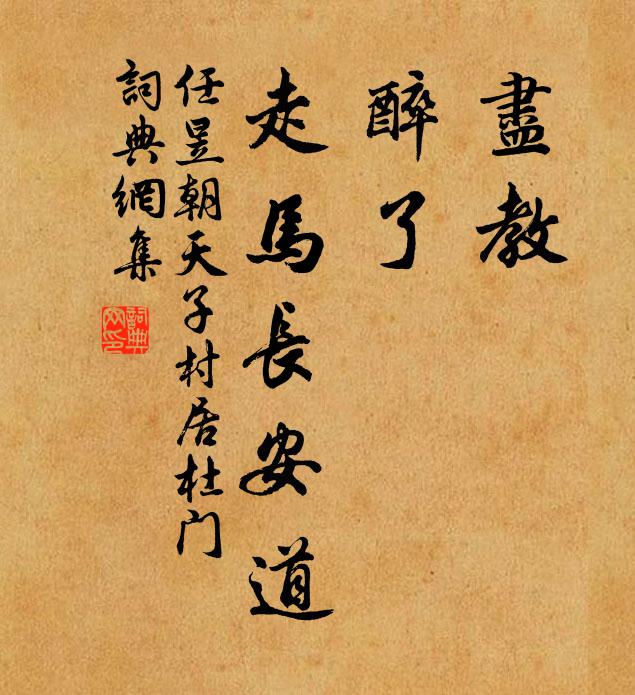 盡教
醉了
走馬長安道
任昱朝天子村居杜门
詞典網集
詞典網印